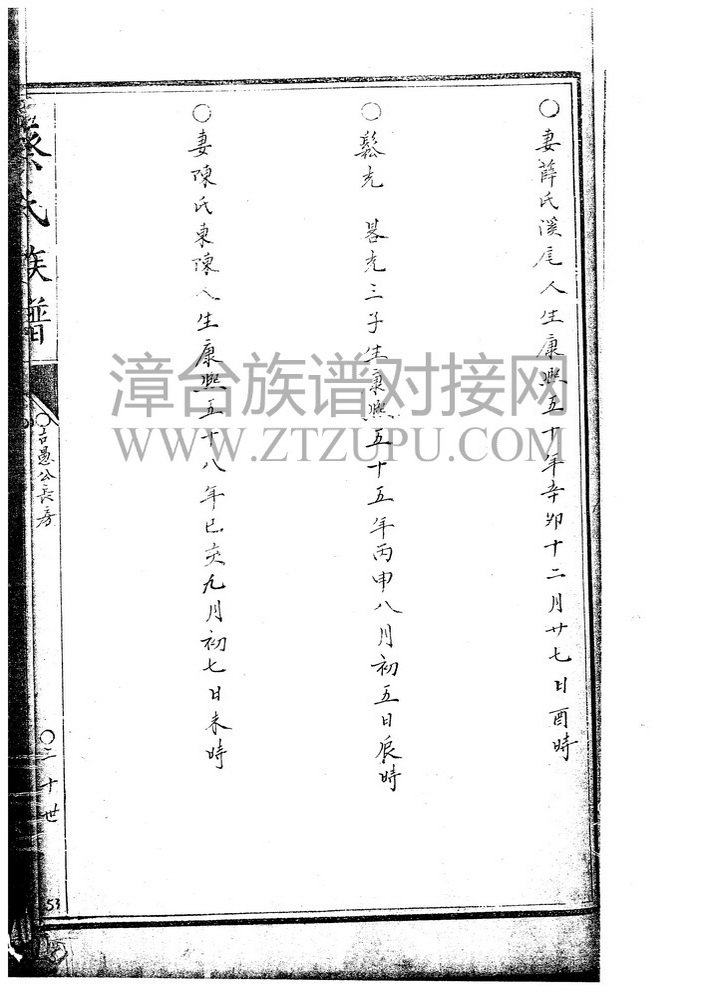 ○妻薛氏溪尾人生康熙五十年辛卯十二月廿七日酉時
○鬆光 畧光三子生康熙五十五年丙申八月初五日辰時
○妻陳氏東陳人生康熙五十八年己亥九月初七日未時
蔡氏族譜
○古愚公長房
○三十世
53
漳台族谱对接网
WWW.ZTZUPU.COM